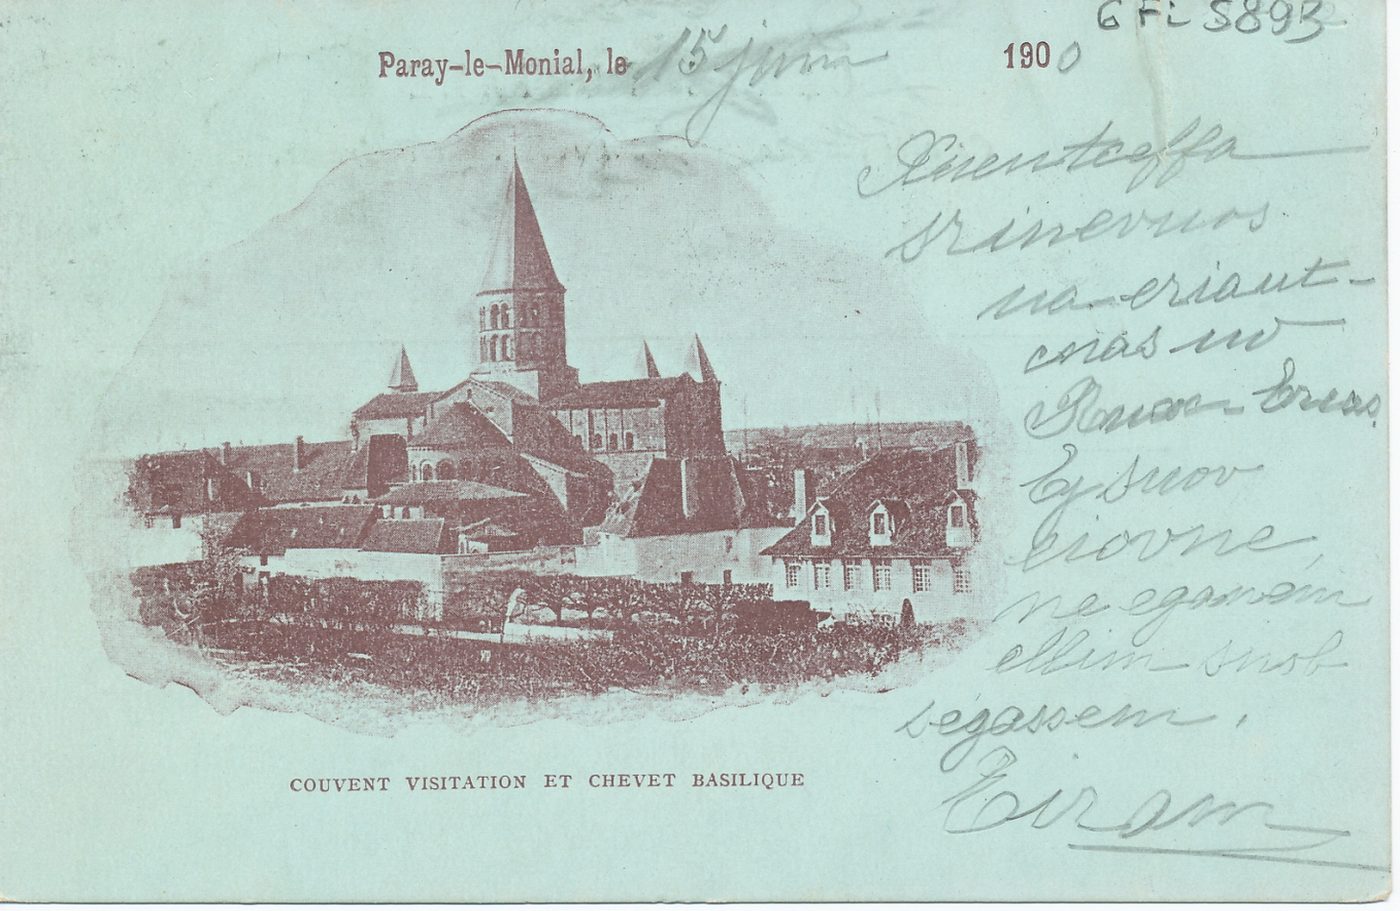 6 Fi 5893
Paray-le-Monial, le 15 juin 1900
Xueutceffa
srinevuos
ua eriaut-
cnas ud
Rueoc Ercas,
Ej suov
eiovne,
ne eganém
ellim snob
ségassem.
Eiram
COUVENT VISITATION ET CHEVET BASILIQUE